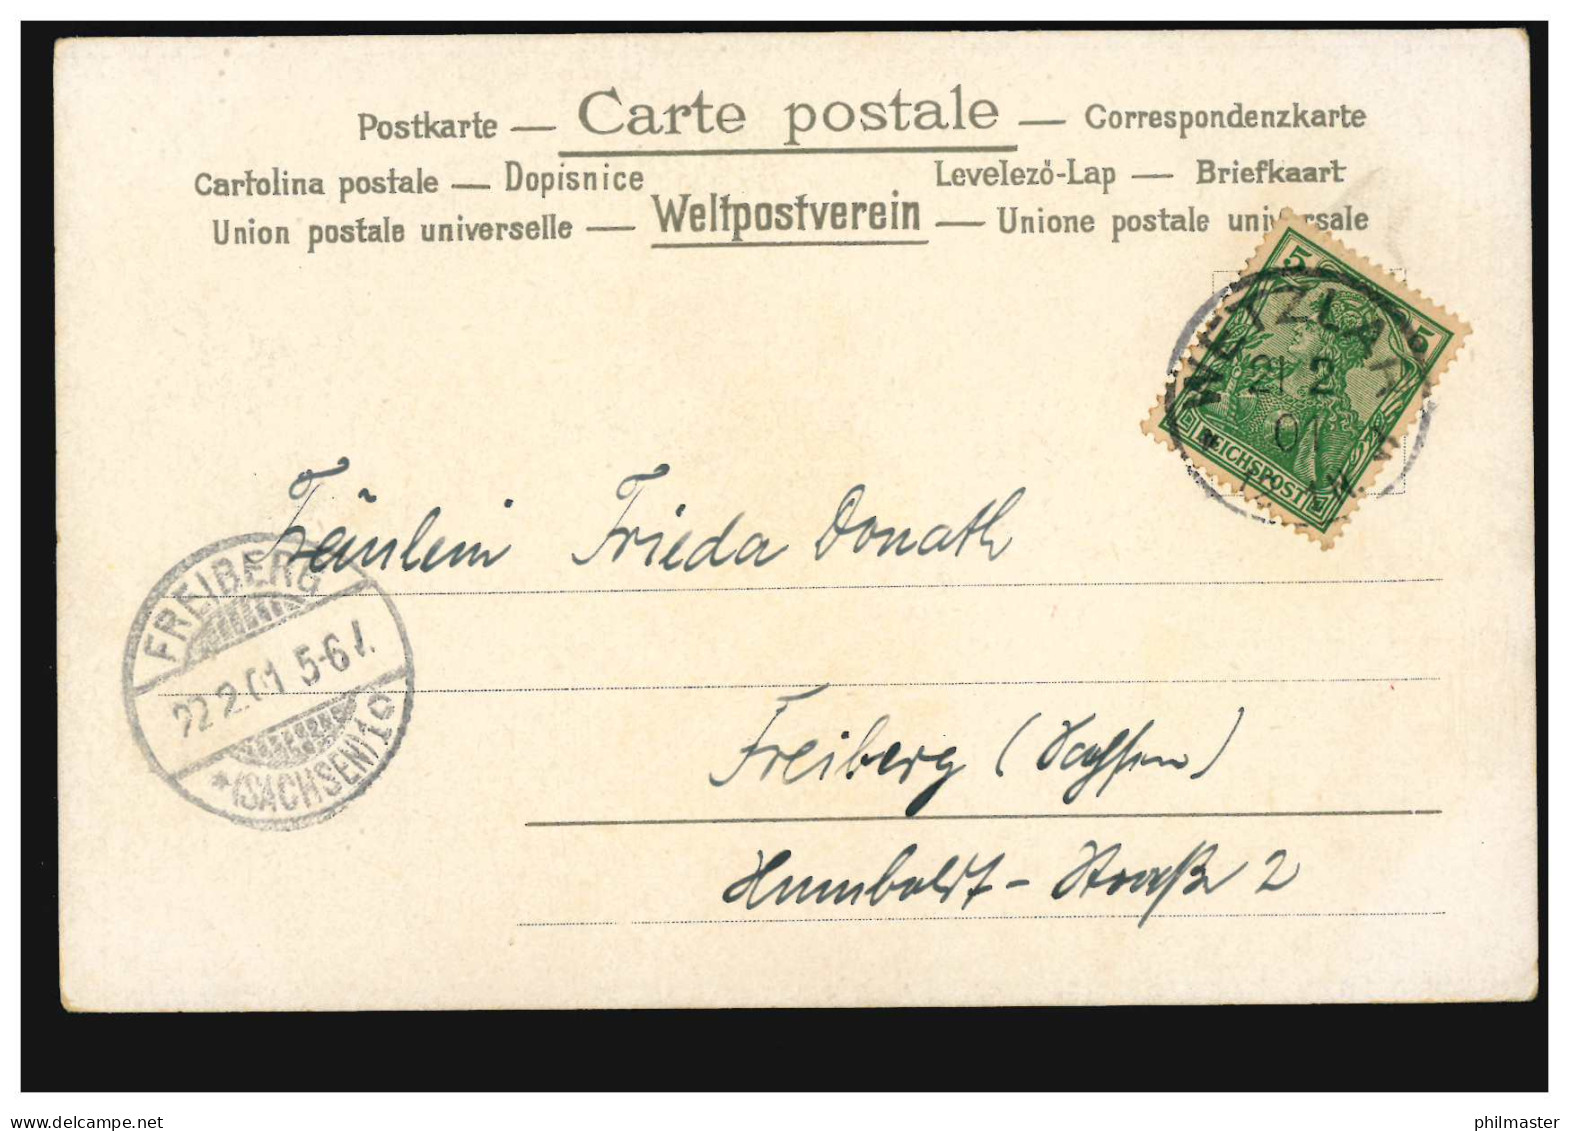 Postkarte — Carte postale — Correspondenzkarte
Cartolina postale — Dopisnice Levelező-Lap — Briefkaart
Union postale universelle — Weltpostverein — Unione postale universale
5 5
REICHSPOST
WETZLAR
21 2
01
Fräulein Frieda Donath
FREIBERG
22.2.01 5-6
*(SACHSEN)1c
Freiberg (Sachsen)
Humboldt-Straße 2
www.delcampe.net
philmaster